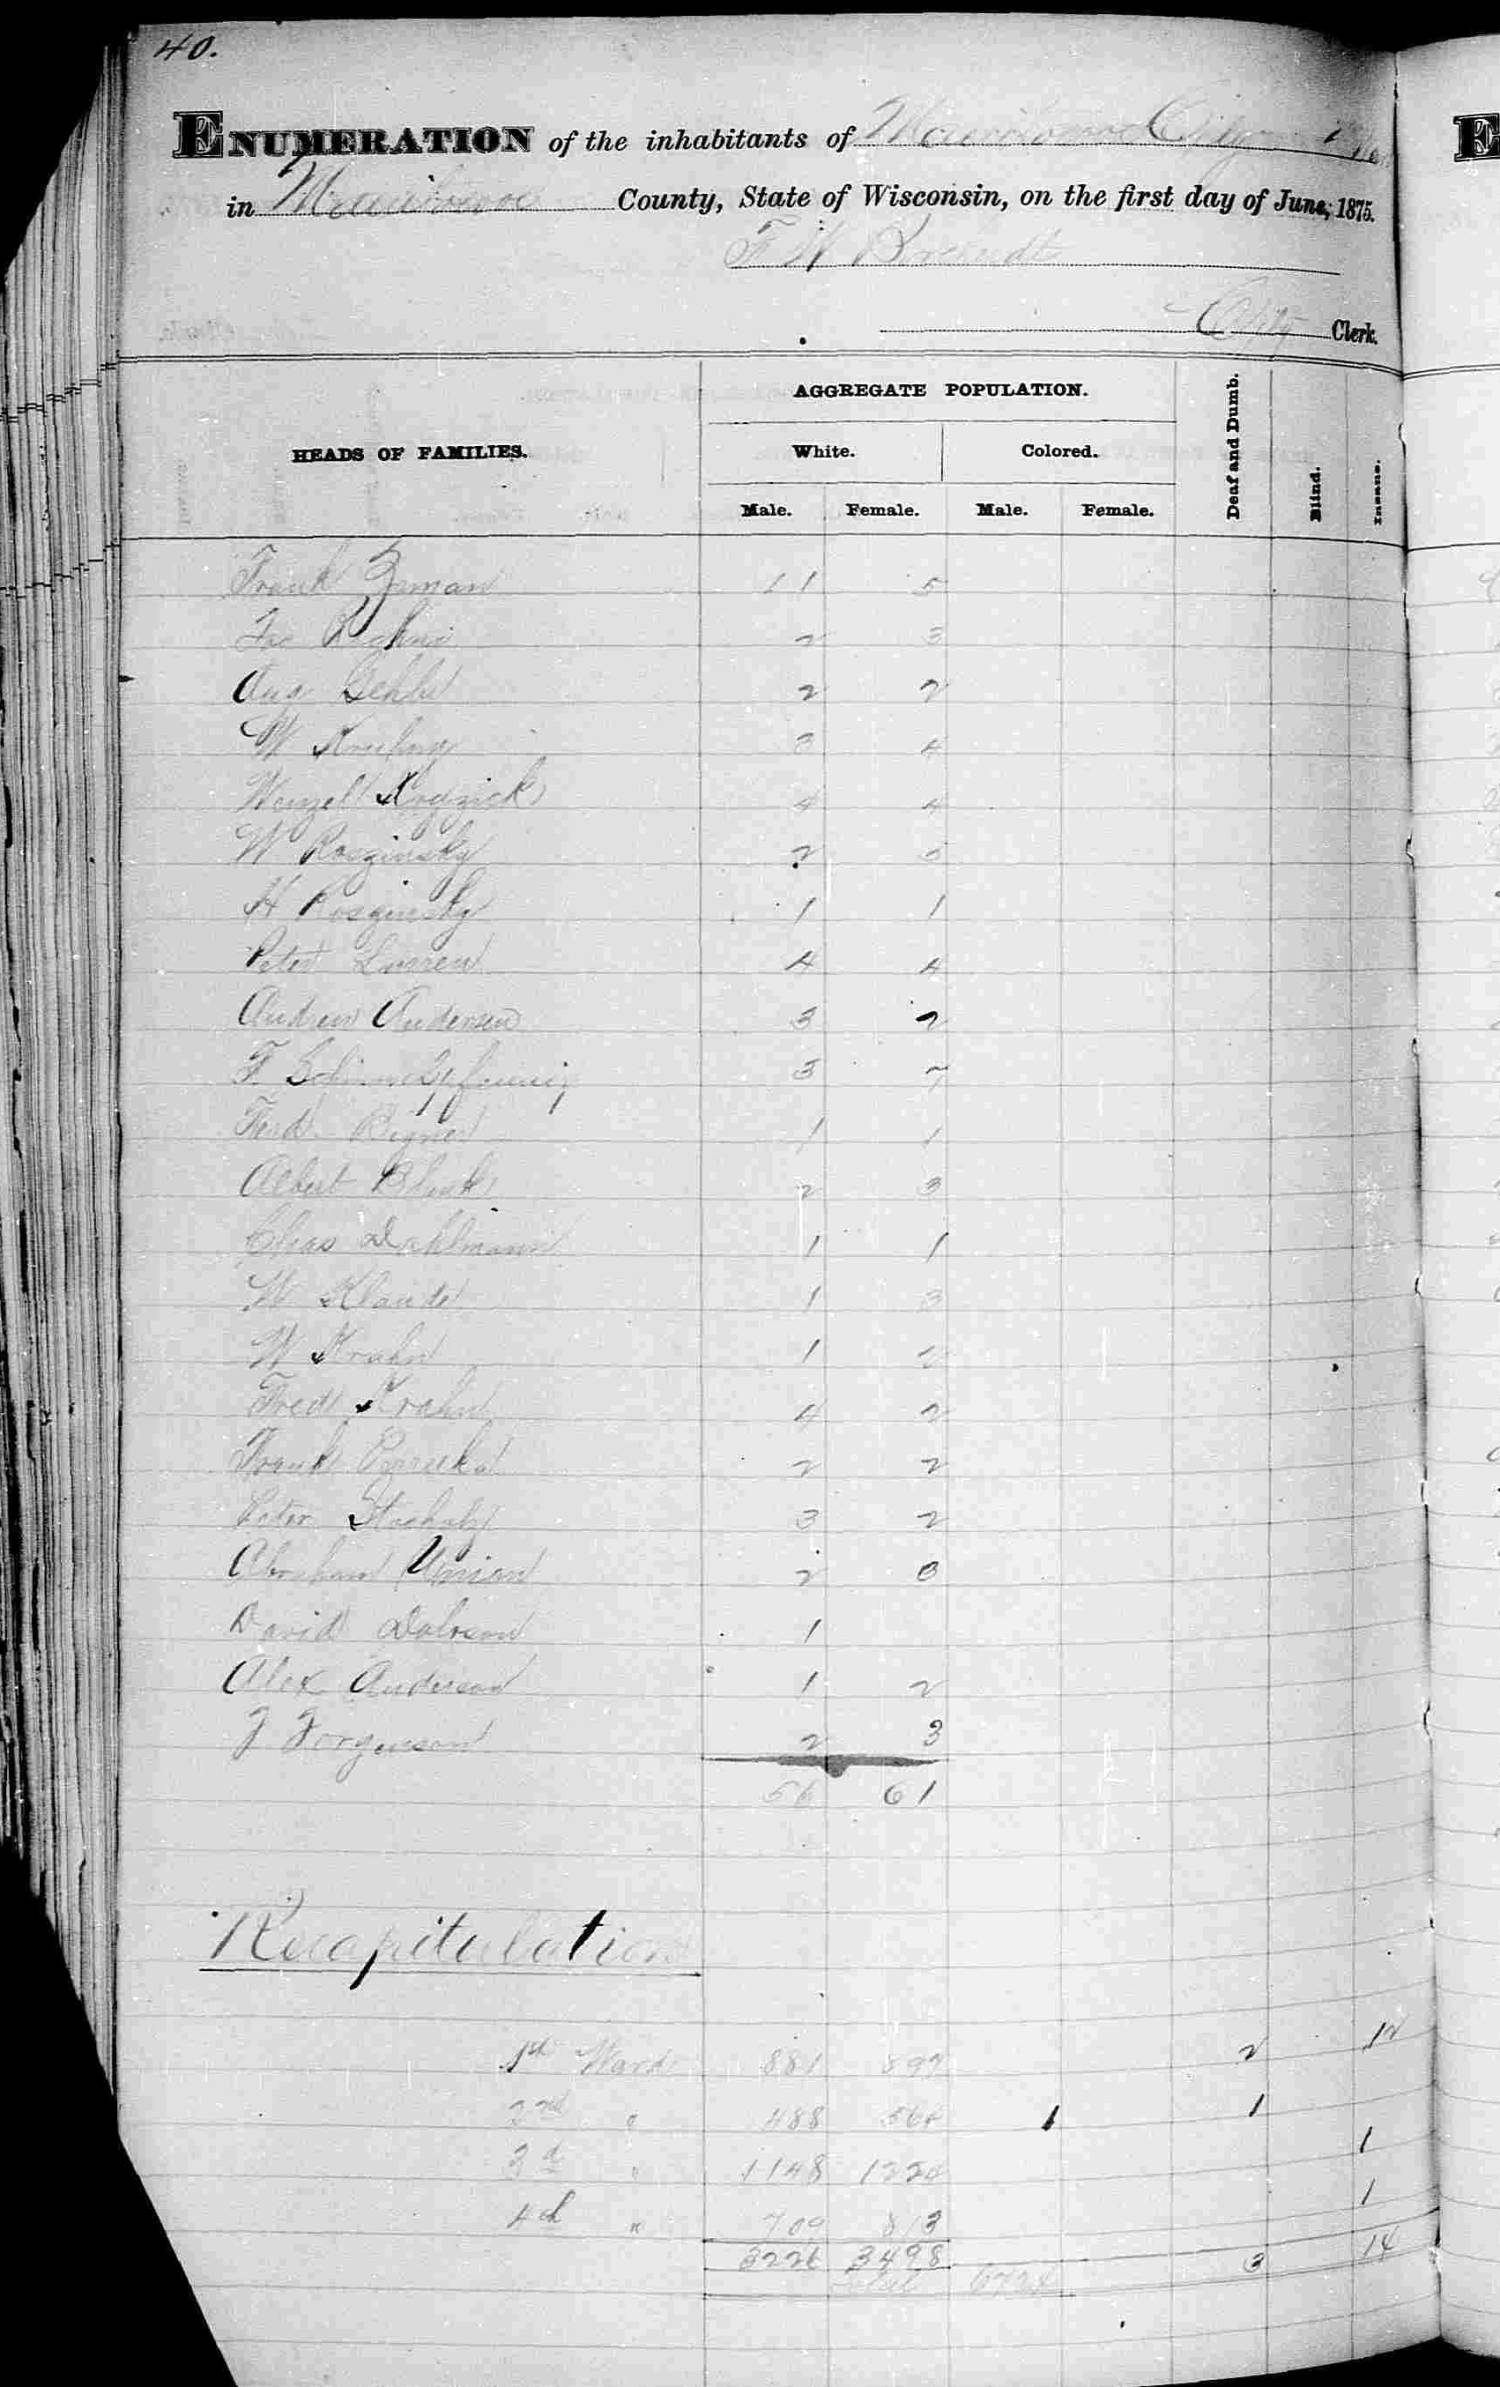 40.
ENUMERATION of the inhabitants of Manitowoc City
in Manitowoc County, State of Wisconsin, on the first day of June, 1875.
F W Borcherdt
City Clerk.
AGGREGATE POPULATION.
HEADS OF FAMILIES. White. Colored. Deaf and Dumb. Blind. Insane.
Male. Female. Male. Female.
Frank Zeman 11 5
2 3
Aug Gehle 2 2
W 3 4
Wenzel 4 4
W Roszinsky 2 5
H Roszinsky 1 1
Peter Larsen 4 4
Andrew Andersen 3 2
F. 3 7
Ferd. 1 1
Albert Blank 2 3
Chas Dahlmann 1 1
W Klaude 1 3
W Krahn 1 2
Fred Krahn 4 2
Frank 2 2
Peter Stachaly 3 2
Abraham Union 2 0
David 1
Alex Anderson 1 2
J Jorgenson 2 3
56 61
Recapitulation
1st Ward 881 897 2 12
2nd " 488 568 1 1
3d " 1148 1220 1
4th " 709 813 1
3226 3498 3 14
Total 6724